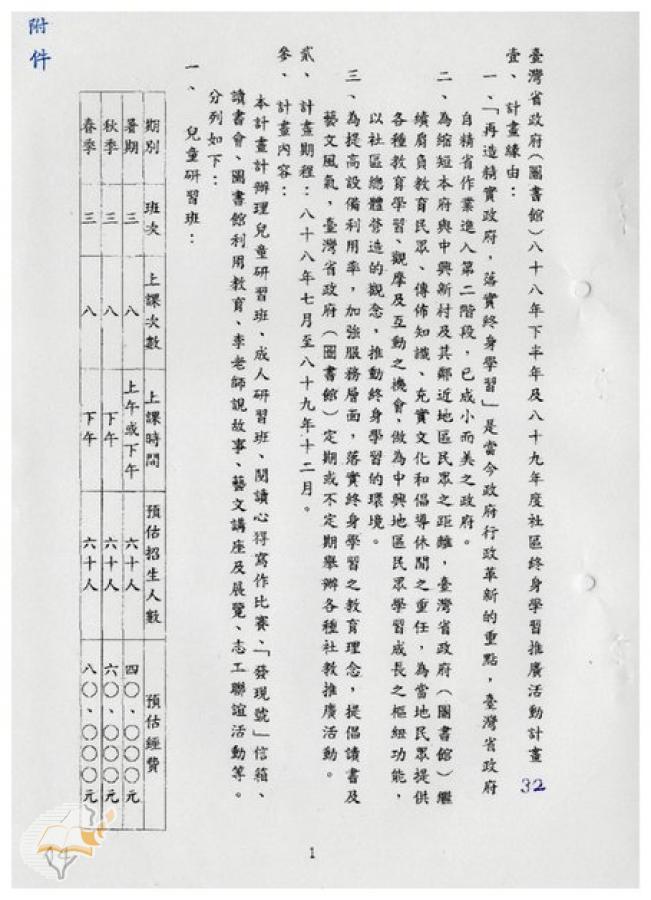 附件
臺灣省政府(圖書館)八十八年下半年及八十九年度社區終身學習推廣活動計畫
32
壹、計畫緣由:
一、「再造精實政府,落實終身學習」是當今政府行政革新的重點,臺灣省政府
自精省作業進入第二階段,已成小而美之政府。
二、為縮短本府與中興新村及其鄰近地區民眾之距離,臺灣省政府(圖書館)繼
續肩負教育民眾、傳佈知識、充實文化和倡導休閒之重任,為當地民眾提供
各種教育學習、觀摩及互動之機會,做為中興地區民眾學習成長之樞紐功能,
以社區總體營造的觀念,推動終身學習的環境。
三、為提高設備利用率,加強服務層面,落實終身學習之教育理念,提倡讀書及
藝文風氣,臺灣省政府(圖書館)定期或不定期舉辦各種社教推廣活動。
貳、計畫期程:八十八年七月至八十九年十二月。
參、計畫內容:
本計畫計辦理兒童研習班、成人研習班、閱讀心得寫作比賽、「發現號」信箱、
讀書會、圖書館利用教育、李老師說故事、藝文講座及展覽、志工聯誼活動等。
分列如下:
一、兒童研習班:
期別 班次 上課次數 上課時間 預估招生人數 預估經費
暑期 三 八 上午或下午 六十人 四〇、〇〇〇元
秋季 三 八 下午 六十人 六〇、〇〇〇元
春季 三 八 下午 六十人 八〇、〇〇〇元
1